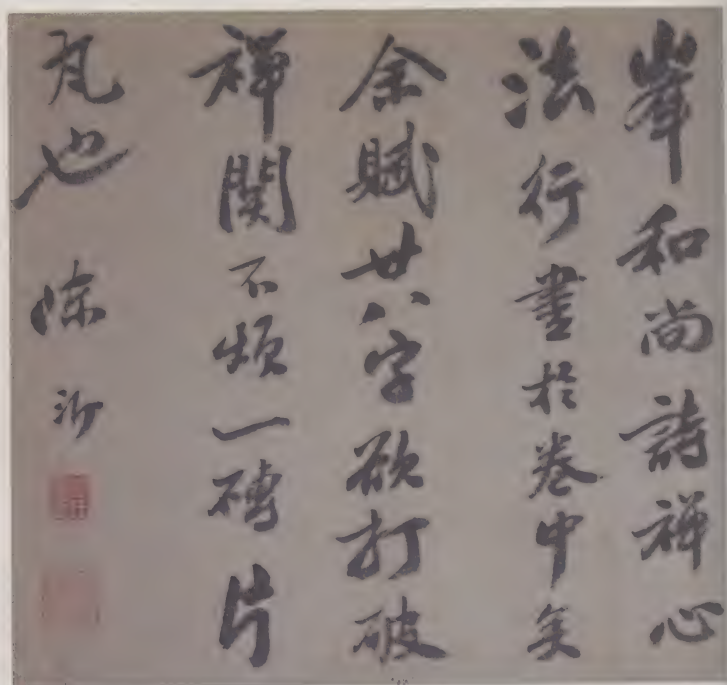 峯和尚詩禅心
法行書於卷中矣
余賦廿八字欲打破
禅関不煩一磚片
瓦也 陳沂